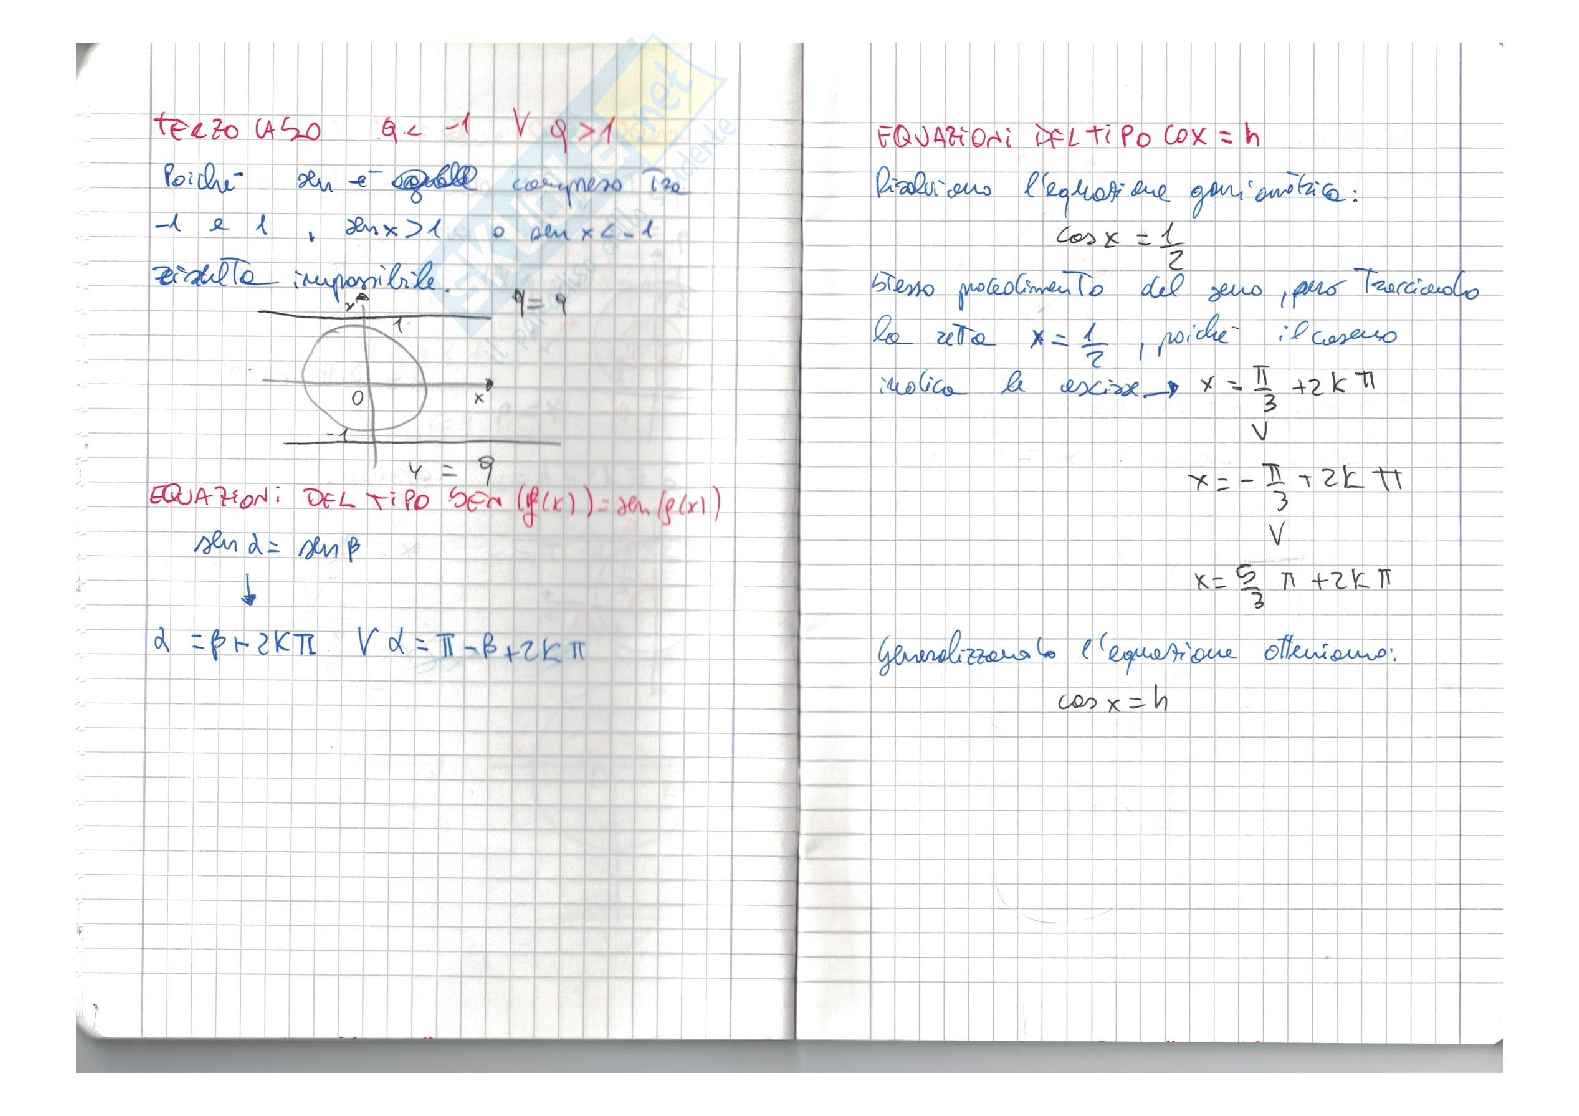 TERZO CASO a < -1 V a > 1
Poiché sen è compreso tra
-1 e 1, senx>1 o senx<-1
risulta impossibile.
y
y = a
1
0
x
-1
y = a
EQUAZIONI DEL TIPO SEN (f(x)) = sen (g(x))
sen α = sen β
↓
α = β + 2Kπ V α = π - β + 2Kπ
EQUAZIONI DEL TIPO COX = h
Risolviamo l'equazione goniometrica:
cos x = 1/2
Stesso procedimento del seno, però tracciando
la retta x = 1/2, poiché il coseno
indica le ascisse → x = π/3 + 2Kπ
V
x = - π/3 + 2Kπ
V
x = 5/3 π + 2Kπ
Generalizzando l'equazione otteniamo:
cos x = h
SKUOLA.net